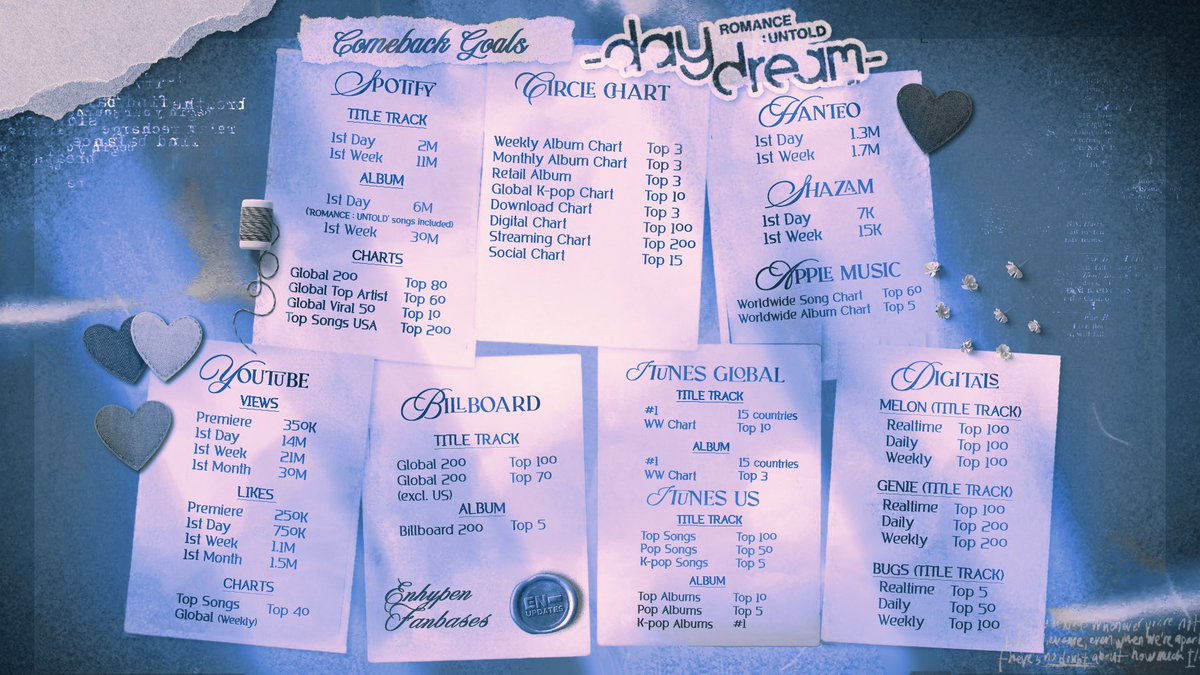 Comeback Goals
-day dream-
ROMANCE
: UNTOLD
SPOTIFY
TITLE TRACK
1st Day 2M
1st Week 11M
ALBUM
1st Day 6M
('ROMANCE : UNTOLD' songs included)
1st Week 30M
CHARTS
Global 200 Top 80
Global Top Artist Top 60
Global Viral 50 Top 10
Top Songs USA Top 200
CIRCLE CHART
Weekly Album Chart Top 3
Monthly Album Chart Top 3
Retail Album Top 3
Global K-pop Chart Top 10
Download Chart Top 3
Digital Chart Top 100
Streaming Chart Top 200
Social Chart Top 15
HANTEO
1st Day 1.3M
1st Week 1.7M
SHAZAM
1st Day 7K
1st Week 15K
APPLE MUSIC
Worldwide Song Chart Top 60
Worldwide Album Chart Top 5
YOUTUBE
VIEWS
Premiere 350K
1st Day 14M
1st Week 21M
1st Month 30M
LIKES
Premiere 250K
1st Day 750K
1st Week 1.1M
1st Month 1.5M
CHARTS
Top Songs Top 40
Global (Weekly)
BILLBOARD
TITLE TRACK
Global 200 Top 100
Global 200 Top 70
(excl. US)
ALBUM
Billboard 200 Top 5
Enhypen
Fanbases
EN-
UPDATES
ITUNES GLOBAL
TITLE TRACK
#1 15 countries
WW Chart Top 10
ALBUM
#1 15 countries
WW Chart Top 3
ITUNES US
TITLE TRACK
Top Songs Top 100
Pop Songs Top 50
K-pop Songs Top 5
ALBUM
Top Albums Top 10
Pop Albums Top 5
K-pop Albums #1
DIGITALS
MELON (TITLE TRACK)
Realtime Top 100
Daily Top 100
Weekly Top 100
GENIE (TITLE TRACK)
Realtime Top 100
Daily Top 200
Weekly Top 200
BUGS (TITLE TRACK)
Realtime Top 5
Daily Top 50
Weekly Top 100
even when we're apart
there's no doubt about how much I